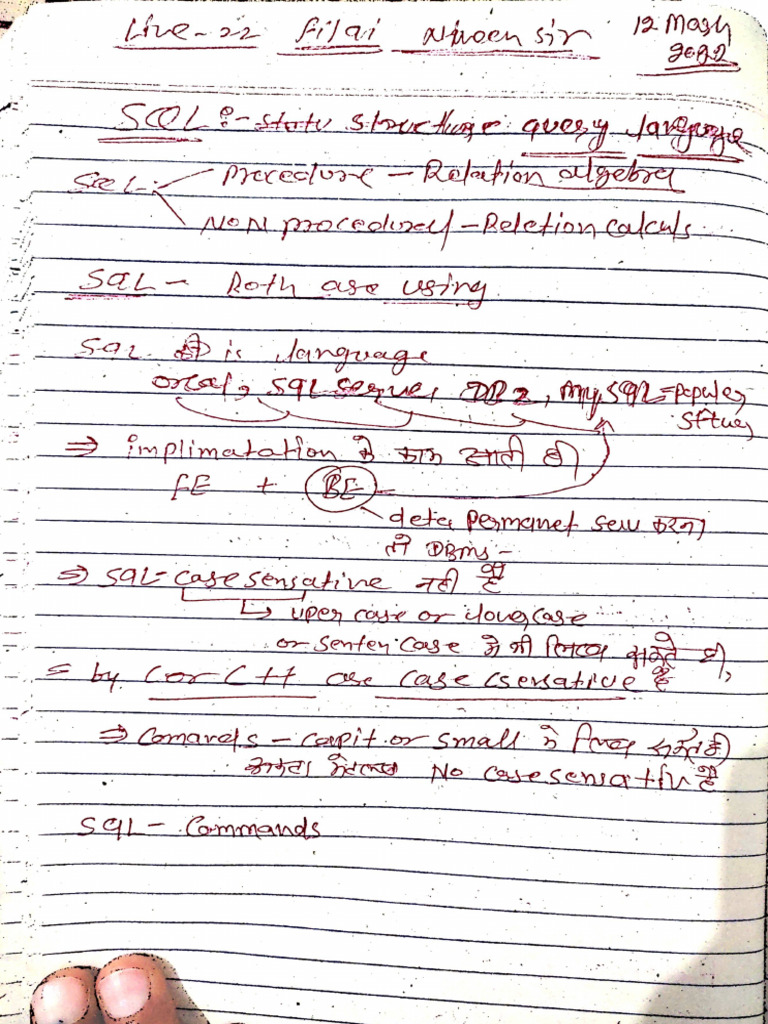 Live-22 filai Niveen sir 12 Mash 2022
SQL :- structure query language
SQL - Procedure - Relation algebra
NoN procedural - Reletion calculs
SQL - Both are using
SQL is language
orcal, SQL server, DB2, My SQL = Populer
⇒ implimatation के काम आती है
FE + BE
deta permanet करना
DBMS -
⇒ SQL = case sensative नही है
↳ uper case or lower case
or senten case मे भी है,
= by C or C++ are case sensative है
⇒ Comands - capit or small मे लिख सकते है
No case sensativ है
SQL - Commands